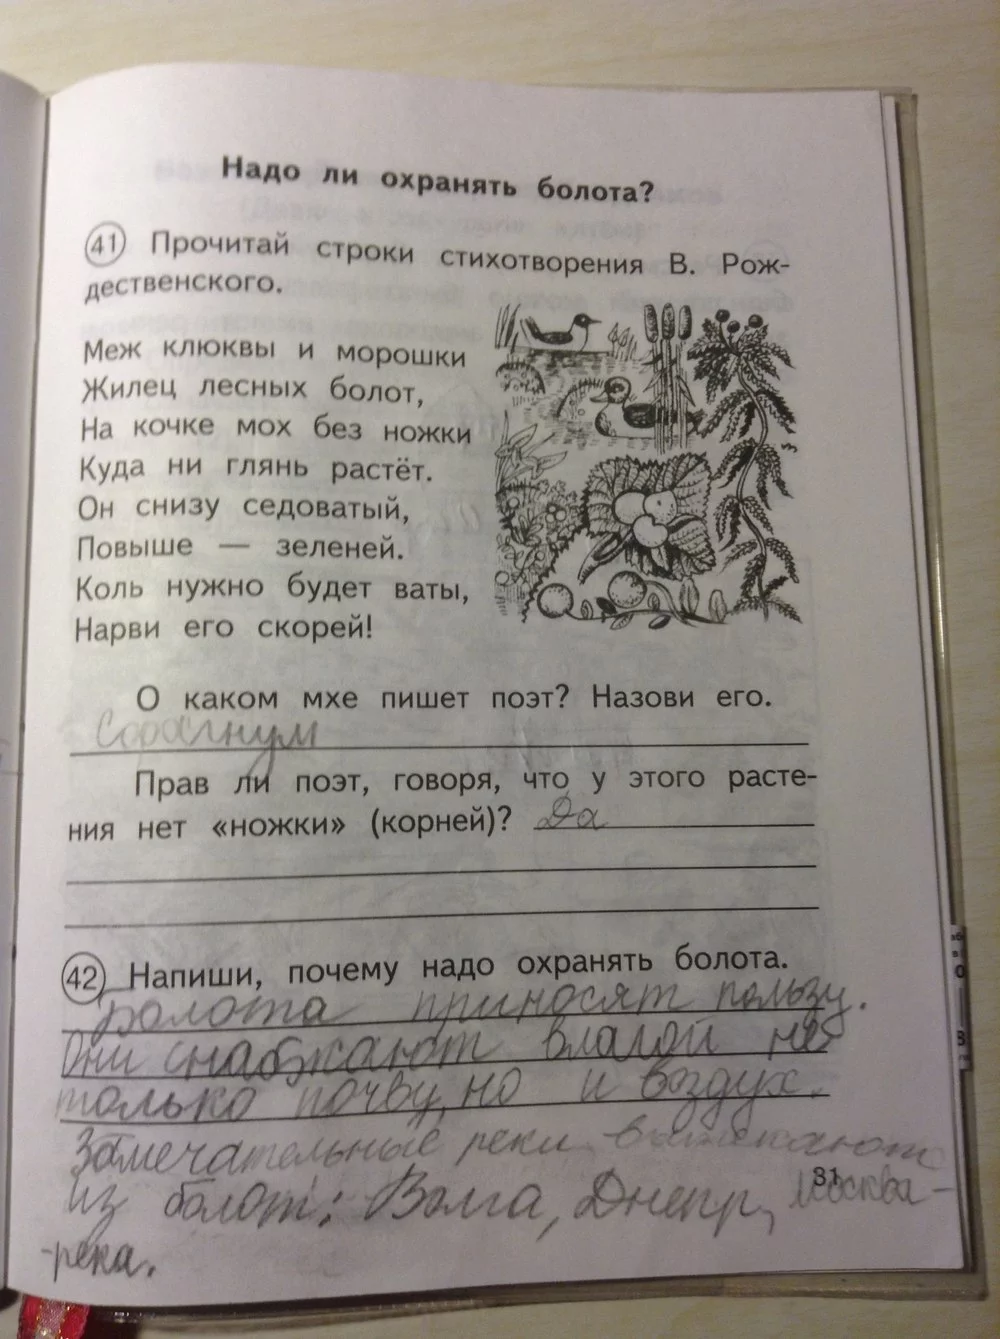 Надо ли охранять болота?
41 Прочитай строки стихотворения В. Рож-
дественского.
Меж клюквы и морошки
Жилец лесных болот,
На кочке мох без ножки
Куда ни глянь растёт.
Он снизу седоватый,
Повыше — зеленей.
Коль нужно будет ваты,
Нарви его скорей!
О каком мхе пишет поэт? Назови его.
Сфагнум
Прав ли поэт, говоря, что у этого расте-
ния нет «ножки» (корней)? Да
42 Напиши, почему надо охранять болота.
Болота приносят пользу.
Они снабжают влагой не
только почву, но и воздух.
Замечательные реки вытекают
31
из болот: Волга, Днепр, Москва-
-река.